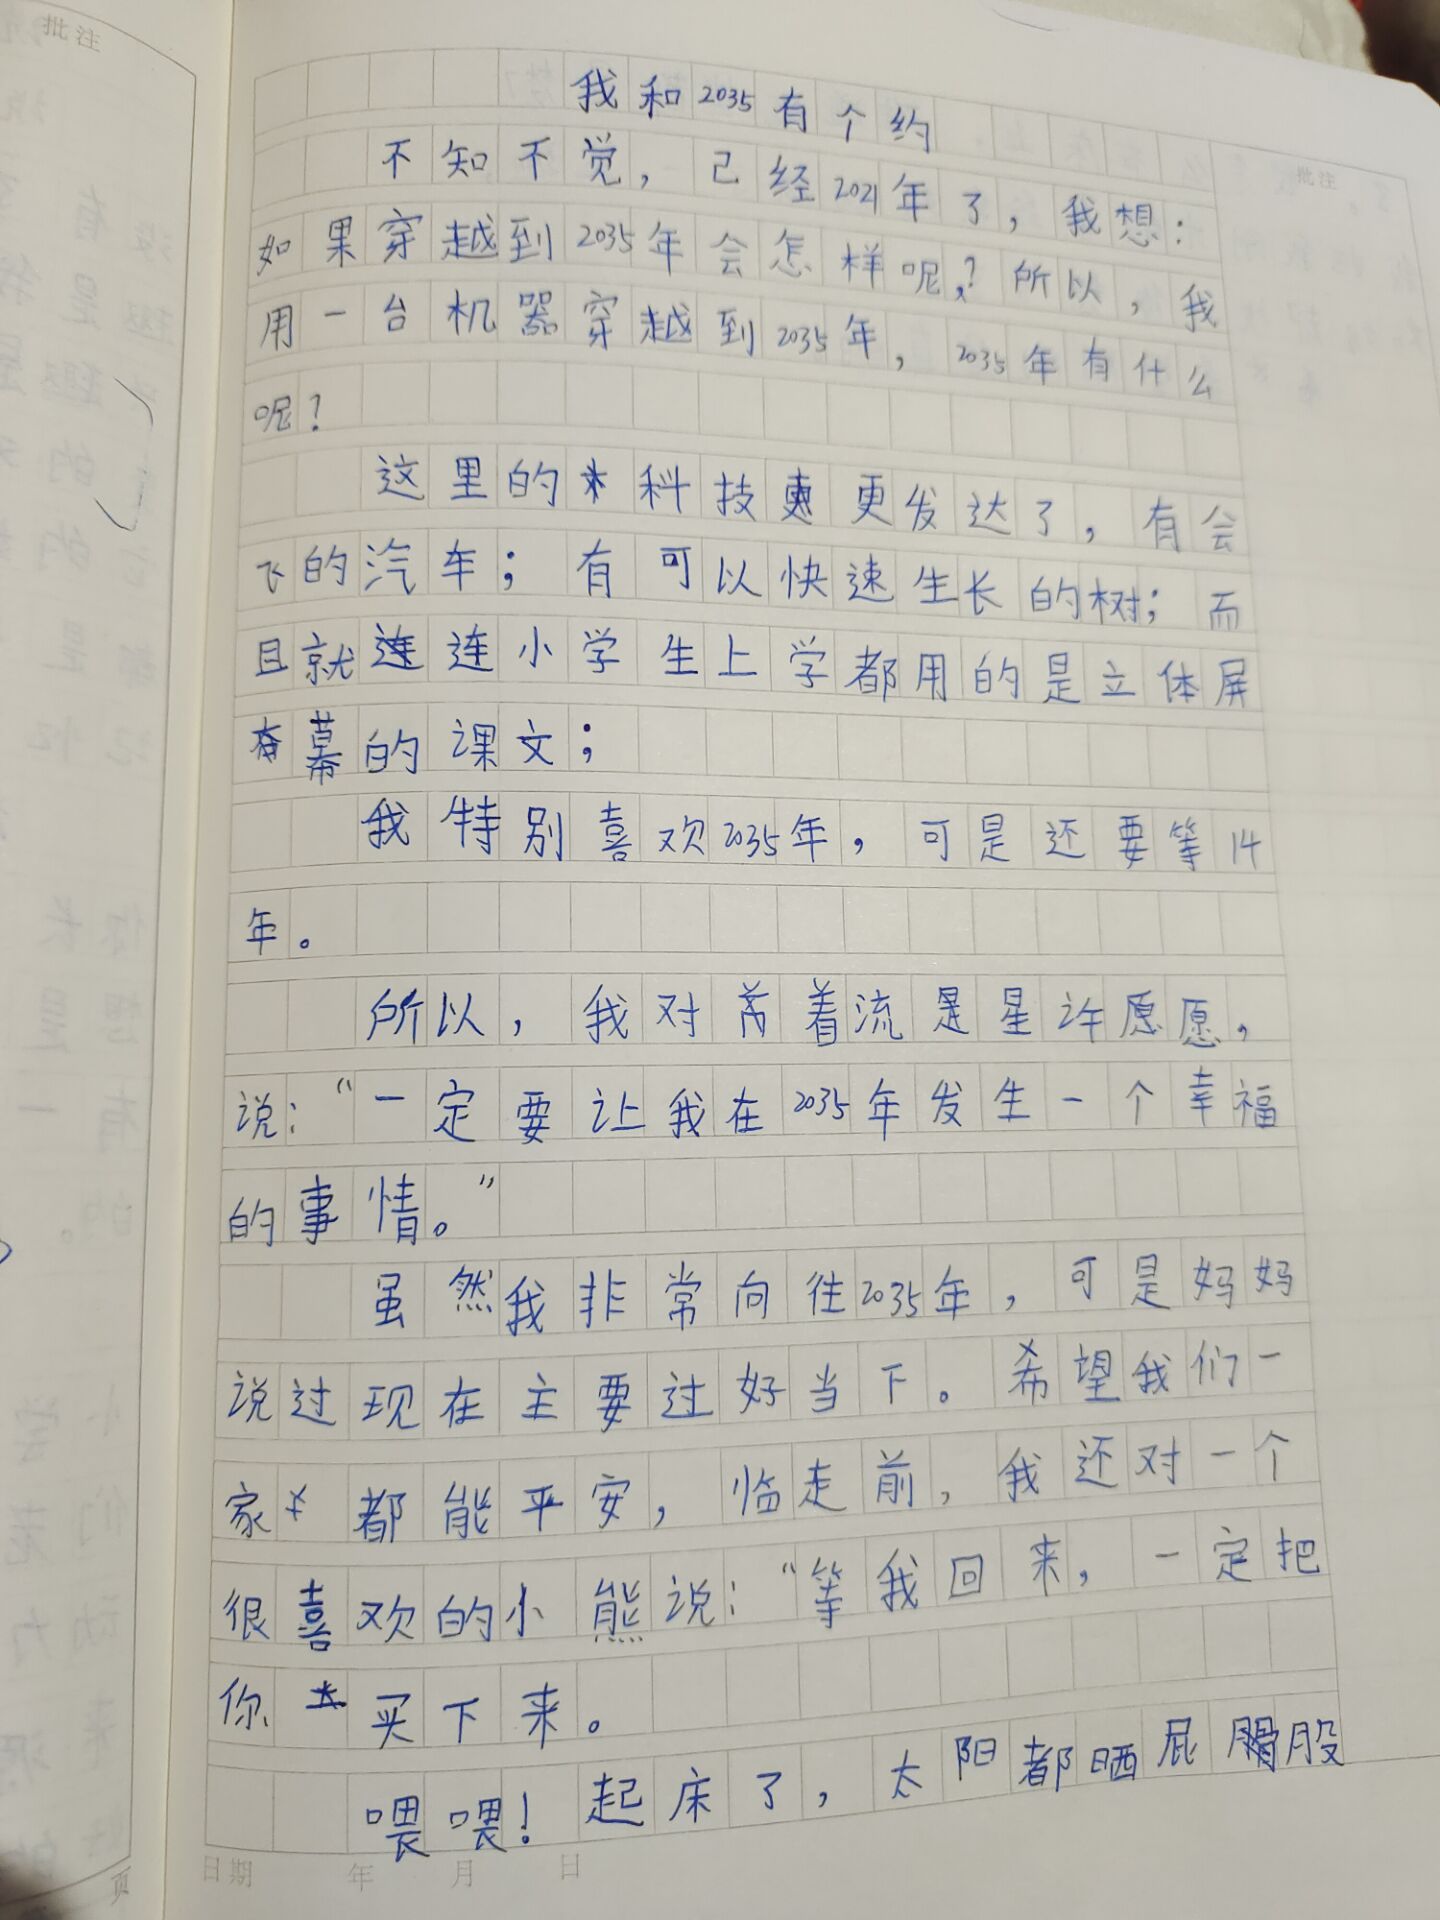 批注
我和2035有个约
不知不觉，己经2021年了，我想：
批注
如果穿越到2035年会怎样呢？所以，我
用一台机器穿越到2035年，2035年有什么
呢？
这里的科技更发达了，有会
飞的汽车；有可以快速生长的树；而
且就连小学生上学都用的是立体屏
幕的课文；
我特别喜欢2035年，可是还要等14
年。
所以，我对着流星许愿愿，
说：“一定要让我在2035年发生一个幸福
的事情。”
虽然我非常向往2035年，可是妈妈
说过现在主要过好当下。希望我们一
家都能平安，临走前，我还对一个
很喜欢的小熊说：“等我回来，一定把
你买下来。
喂喂！起床了，太阳都晒屁股
日期 年 月 日
页